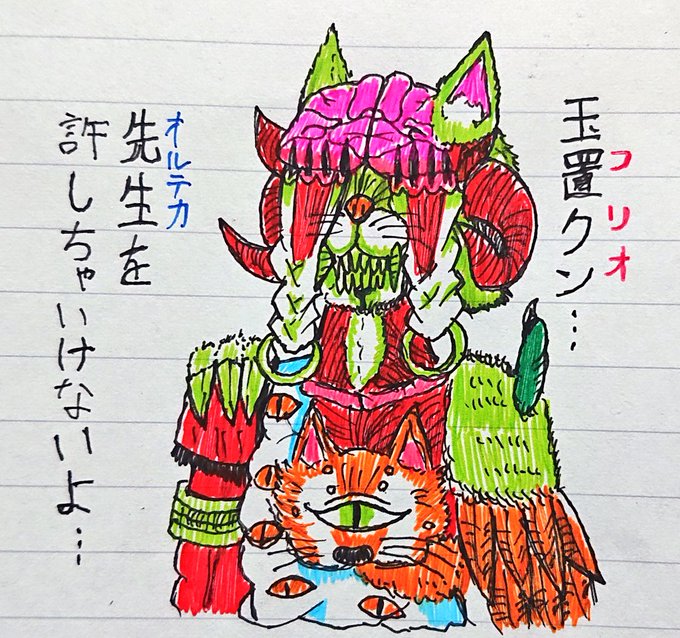 玉置クン…
コリオ
オルテカ
先生を
許しちゃいけないよ…